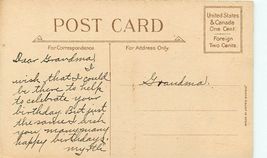 POST CARD
United States
& Canada
One Cent.
Foreign
Two Cents.
For Correspondence
For Address Only.
Dear Grandma!
I
wish that I could
be there to help
to celebrate your
birthday. But just
the same I wish
you many many
happy birthdays
Grandma.